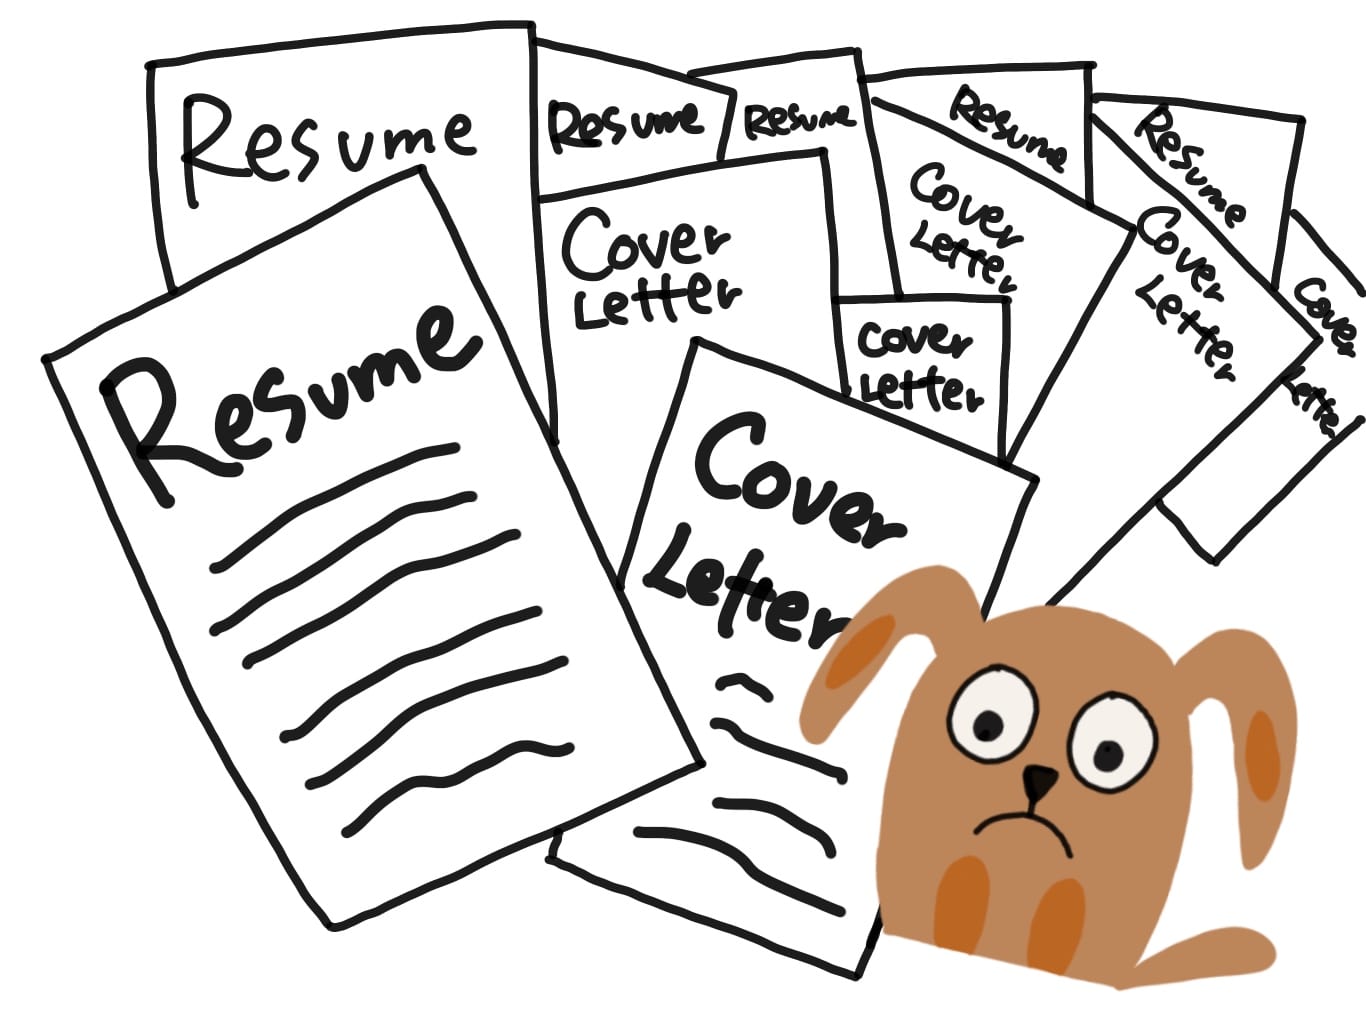 Resume
Resume
Resume
Resume
Resume
Cover
Letter
Cover
Letter
Cover
Letter
Cover
Letter
Cover
Letter
Resume
Cover
Letter